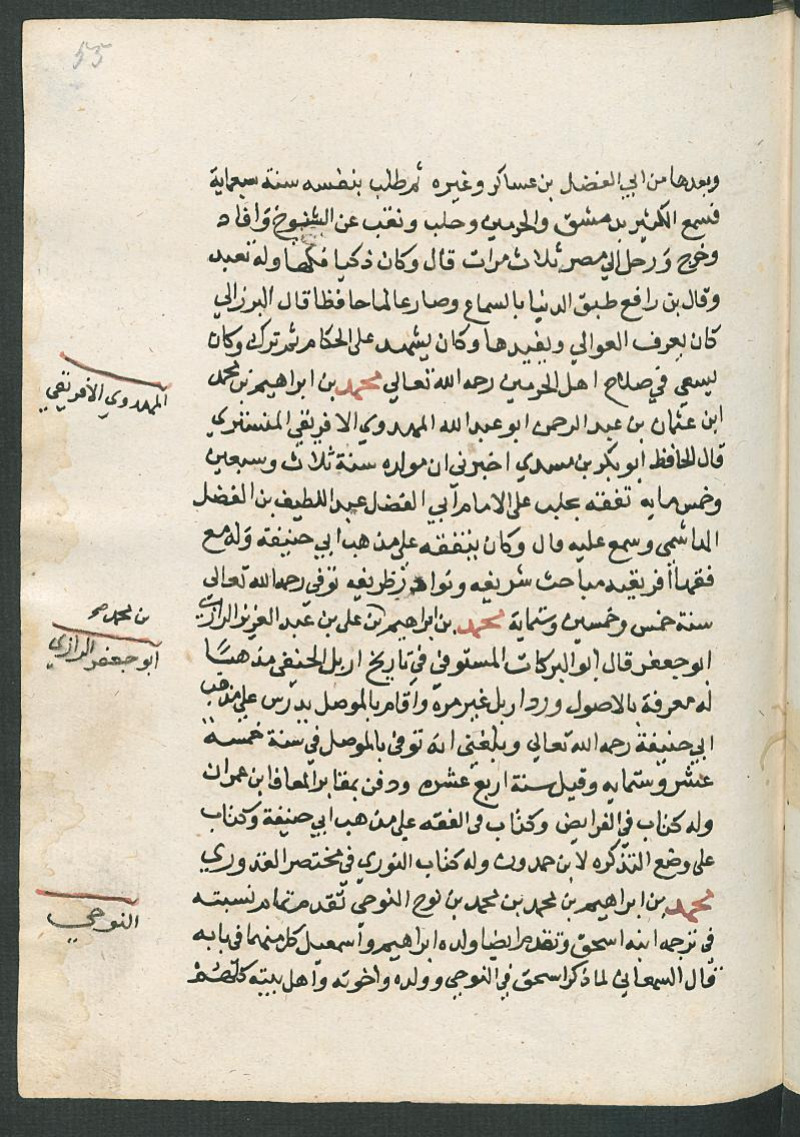 55
وبعدها من ابي الفضل بن عساكر وغيره ثم طلب بنفسه سنة سبعماية
فسمع الكثير بدمشق والحرمين وحلب ونقب عن الشيوخ وافاد
وخرج ورحل الي مصر ثلاث مرات قال وكان ذكيا فكها وله تعبد
وقال بن رافع طبق الدنيا بالسماع وصار عالما حافظا قال البرزالي
كان يعرف العوالي ويفيدها وكان يشهد علي الحكام ثم ترك وكان
يسعي في صلاح اهل الحرمين رحمه الله تعالي محمد بن ابراهيم بن محمد
المهدوي الأفريقي
ابن عثمان بن عبد الرحمن ابو عبد الله المهدوي الافريقي المنستري
قال الحافظ ابو بكر بن مسدي اخبرني ان مولده سنة ثلاث وسبعين
وخمس مايه تفقه بحلب علي الامام أبي الفضل عبد اللطيف بن الفضل
الهاشمي وسمع عليه قال وكان يتفقه علي مذهب ابي حنيفه وله مع
فقهاء أفريقيه مباحث شريفه ونوادر ظريفه توفي رحمه الله تعالي
سنة خمس وخمسين وستماية محمد بن ابراهيم بن علي بن عبد العزيز الرازي
بن محمد صح
ابو جعفر الرازي
ابو جعفر قال ابو البركات المستوفي في تاريخ اربل الحنفي مذهبًا
له معرفة بالاصول ورد اربل غير مرة وأقام بالموصل يدرس علي مذهب
ابي حنيفة رحمه الله تعالي وبلغني انه توفي بالموصل في سنة خمسة
عشر وستمايه وقيل سنة اربع عشره ودفن بمقابر المعافا ابن عمران
وله كتاب في الفرايض وكتاب في الفقه علي مذهب ابي حنيفة وكتاب
علي وضع التذكره لابن حمدون وله كتاب النوري في مختصر القدوري
محمد بن ابراهيم بن محمد بن محمد بن نوح النوحي تقدم تمام نسبته
النوحي
في ترجمه ابنه اسحق وتقدم ايضا ولده ابراهيم وأسمعيل كل منهما في بابه
قال السمعاني لما ذكر اسحق في النوحي وولده واخوته وأهل بيته كلهم